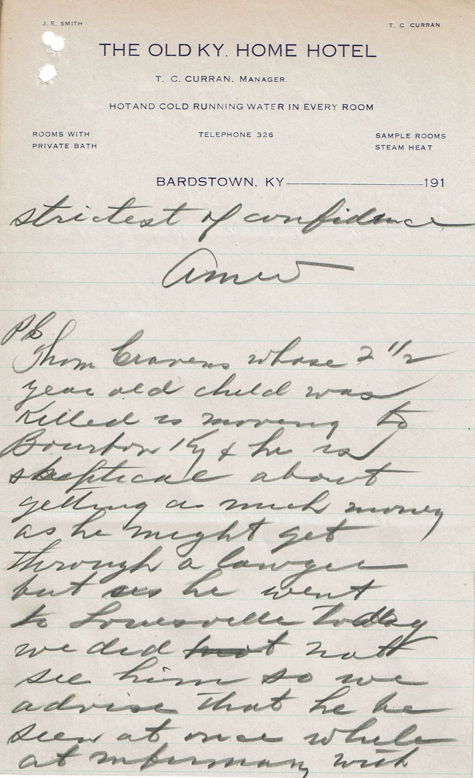 J. E. SMITH
T. C. CURRAN
THE OLD KY. HOME HOTEL
T. C. CURRAN, MANAGER
HOT AND COLD RUNNING WATER IN EVERY ROOM
ROOMS WITH
PRIVATE BATH
TELEPHONE 326
SAMPLE ROOMS
STEAM HEAT
BARDSTOWN, KY 191
strictest of confidence
PS
Thom Cravens whose 2 1/2
year old child was
killed is moving to
Bourbon Ky & he is
skeptical about
getting as much money
as he might get
through a lawyer
but as he went
to Louesville today
we did not
see him so we
advise that he be
seen at once while
at infirmary with